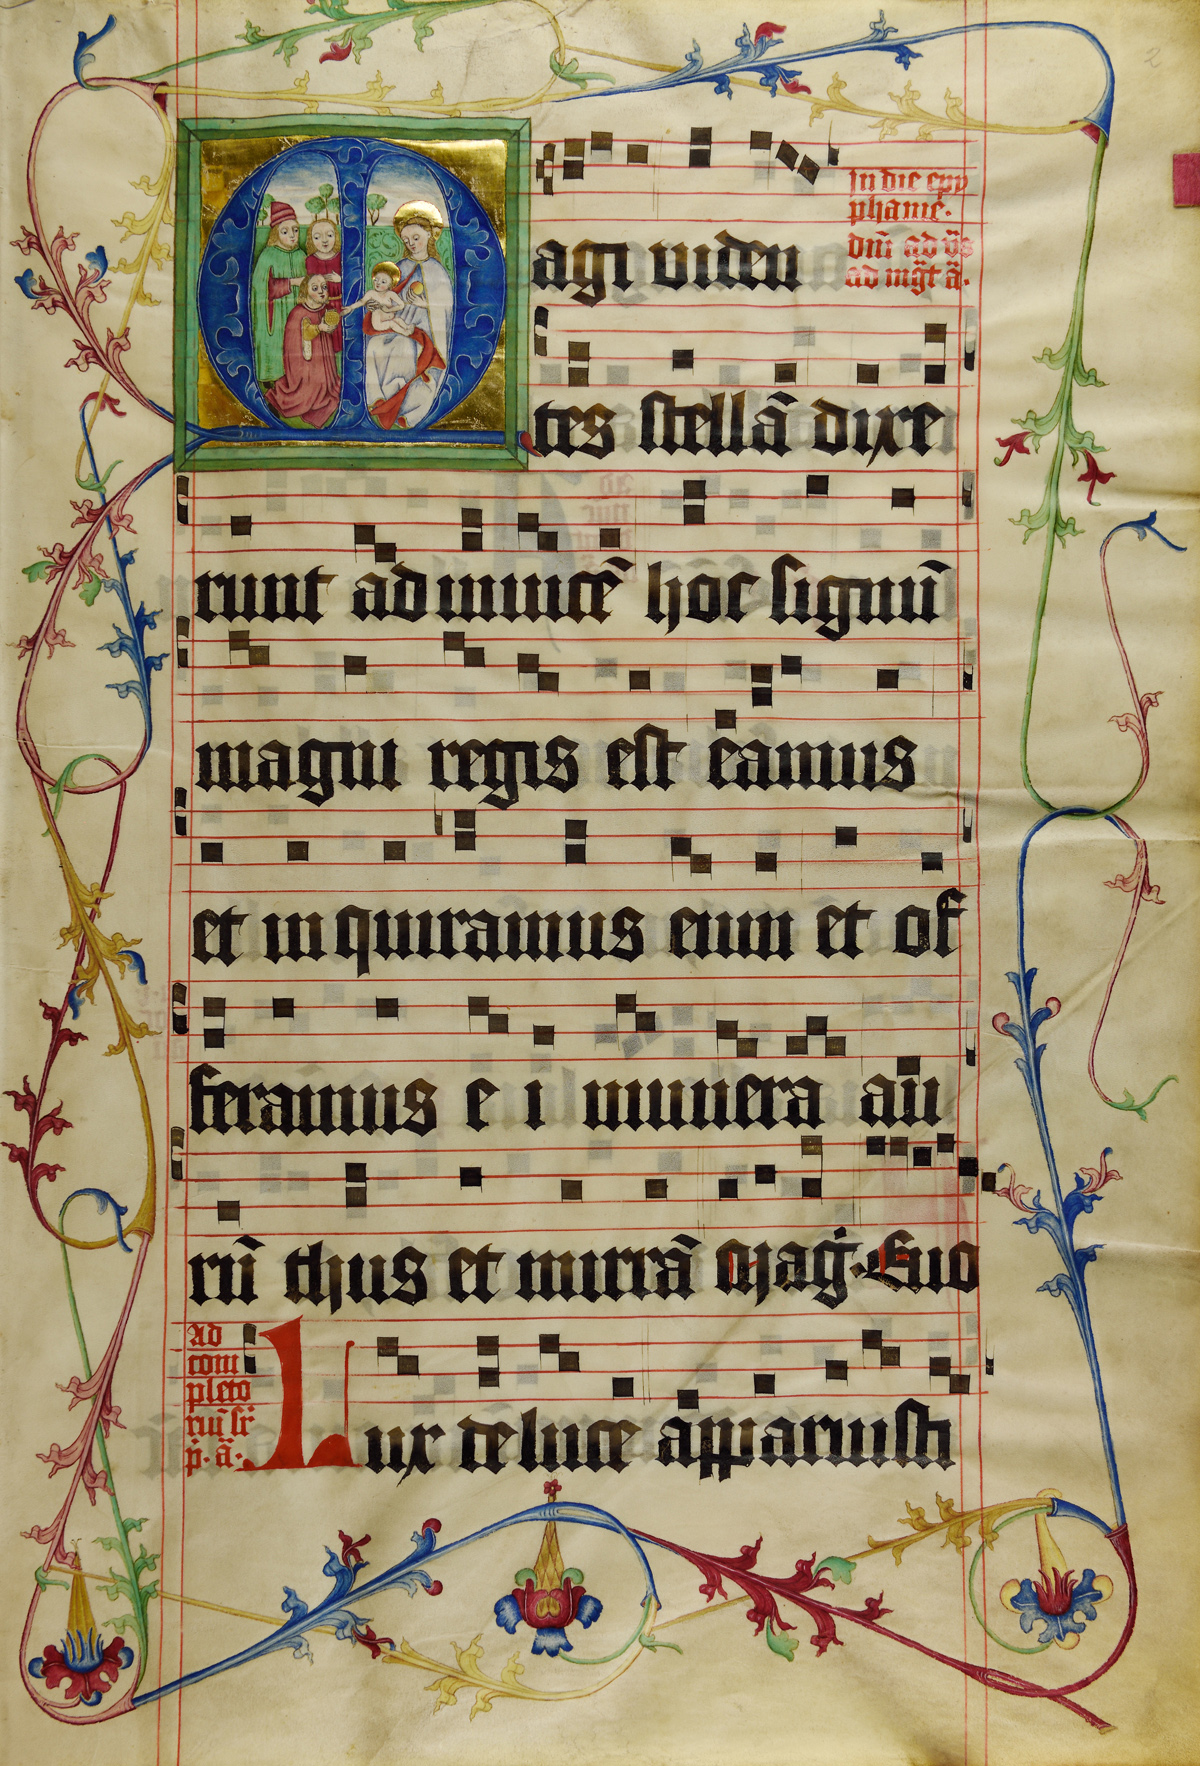 In die epy
phanie.
Magi viden
dm̄ ad v̄s
ad mḡt ā.
tes stellā dixe
runt ad inuicē hoc signū
magni regis est eamus
et inquiramus eum et of
feramus e i munera au
rū thus et mirrā Mag. Euo
Ad
com
pleto
riū sr̄
p̄. ā.
Lux de luce apparuisti
2